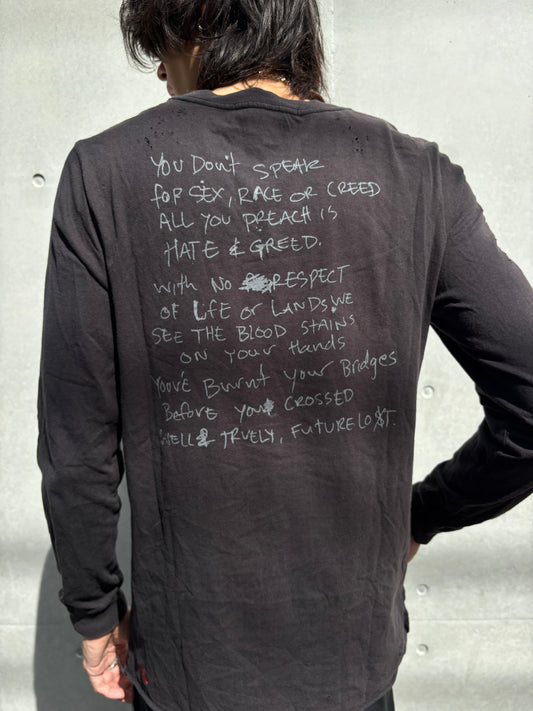 YOU DON't SPEAK
FOR SEX, RACE OR CREED
ALL YOU PREACH IS
HATE & GREED.
WITH NO RESPECT
OF LIFE OR LANDS WE
SEE THE BLOOD STAINS
ON YOUR HANDS
YOOVE BURNT YOUR BRIDGES
BEFORE YOU CROSSED
WELL & TRUELY, FUTURE LO$T.